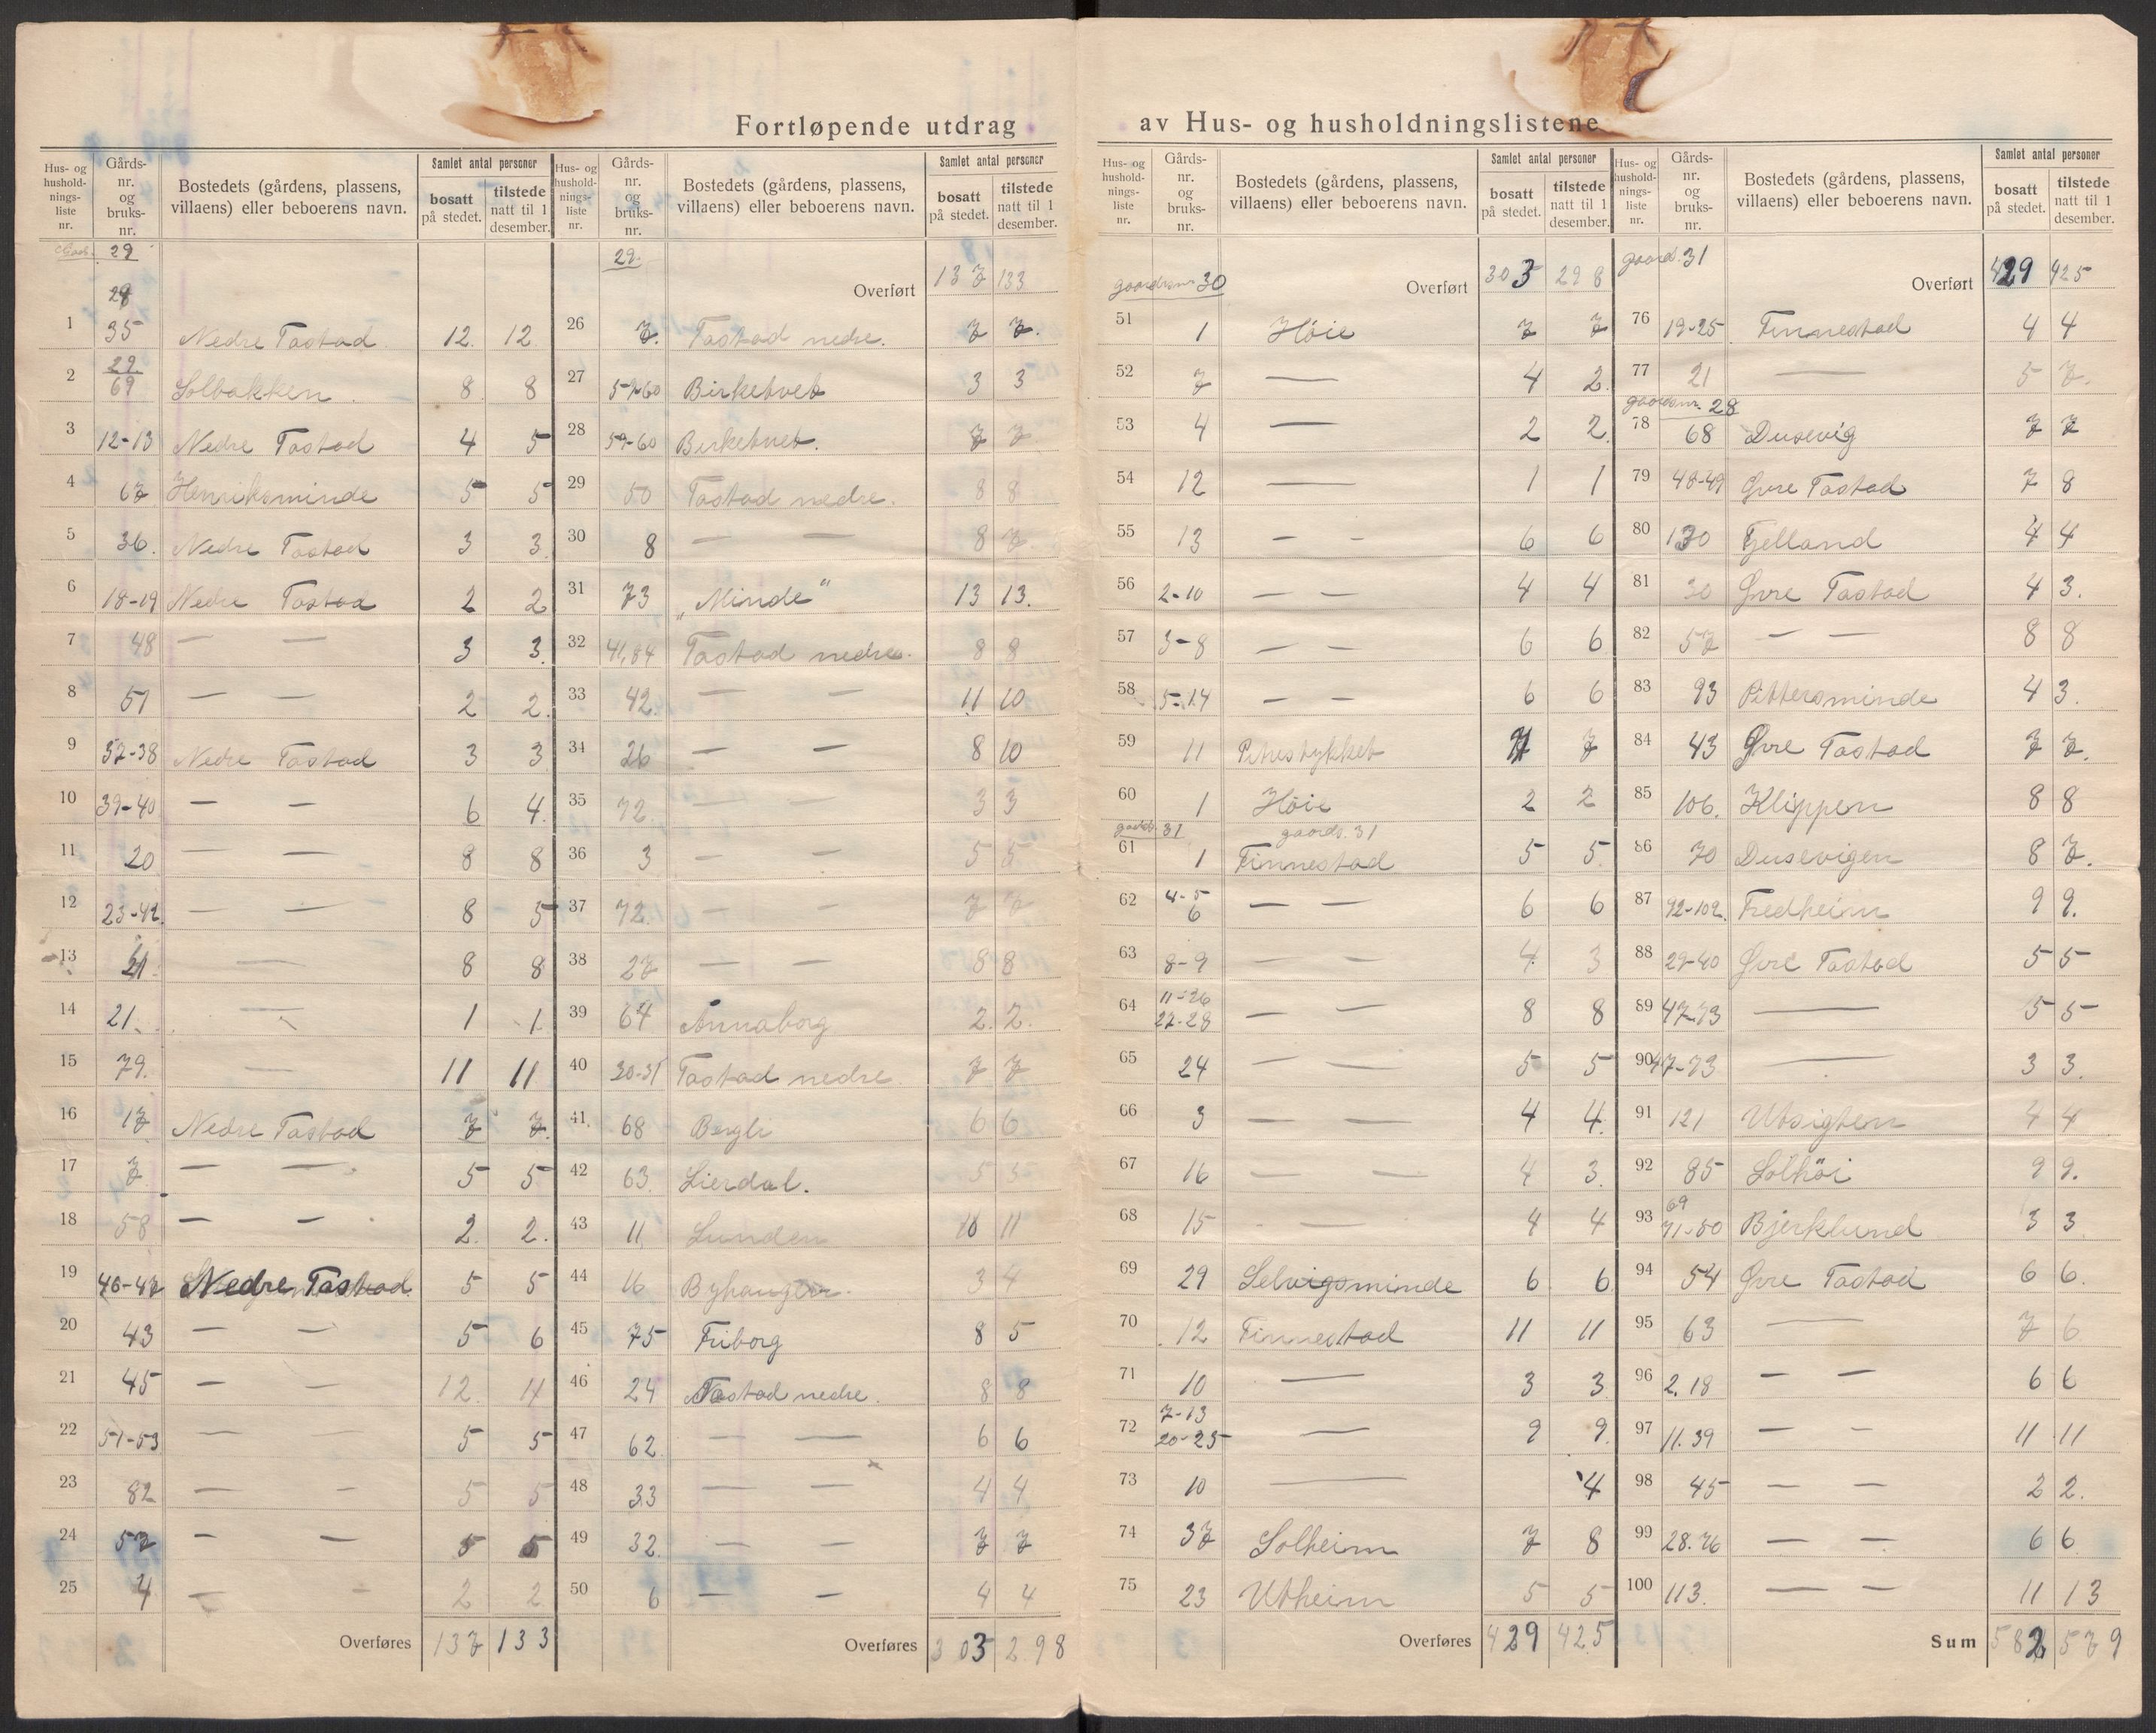 Fortløpende utdrag av Hus- og husholdningslistene
Hus- og hushold-nings-liste nr. Gårds-nr. og bruks-nr. Bostedets (gårdens, plassens, villaens) eller beboerens navn. Samlet antal personer bosatt på stedet. tilstede natt til 1 desember.
29
28
1 35 Nedre Tastad 12. 12
2 29 69 Solbakken 8 8
3 12-13 Nedre Tastad 4 5
4 67 Henriksminde 5 5
5 36. Nedre Tastad 3 3
6 18-19 Nedre Tastad 2 2
7 48 — — 3 3.
8 51 — — 2 2.
9 37-38 Nedre Tastad 3 3
10 39-40 — — 6 4.
11 20 — — 8 8
12 23-42 — — 8 5
13 21 — 8 8
14 21. — 1 1
15 79. — 11 11
16 17 Nedre Tastad 7 7.
17 7 — — 5 5
18 58 — — 2. 2.
19 46-47 Nedre Tastad 5 5
20 43 — — 5 6
21 45 — — 12. 11
22 51-53 — — 5 5
23 82 — — 5 5
24 57 — — 5 5
25 4 — — 2 2
Overføres 137 133
Hus- og hushold-nings-liste nr. Gårds-nr. og bruks-nr. Bostedets (gårdens, plassens, villaens) eller beboerens navn. Samlet antal personer bosatt på stedet. tilstede natt til 1 desember.
29.
Overført 137 133
26 7. Tastad nedre. 7 7.
27 59-60 Birketvet 3 3
28 59-60 Birketvet. 7 7
29 50 Tastad nedre. 8 8
30 8 — — 8 7
31 73 „Minde“ 13 13.
32 41,84 Tastad nedre. 8 8
33 42. — — 11 10
34 26 — — 8 10
35 72. — — 3 3
36 3 — — 5 5
37 72. — — 7 7
38 27 — — 8 8
39 64 Annaborg 2. 2.
40 30-31 Tastad nedre. 7 7
41. 68 Bergli 6 6
42 63. Lierdal. 5 5
43 11 Lunden 10 11
44 16 Byhaugen. 3 4
45 75 Friborg 8 5
46 24 Tastad nedre. 8 8
47 62. — — 6 6
48 33 — — 4 4
49 32. — — 7 7
50 6 — — 4 4
Overføres 303 298
Hus- og hushold-nings-liste nr. Gårds-nr. og bruks-nr. Bostedets (gårdens, plassens, villaens) eller beboerens navn. Samlet antal personer bosatt på stedet. tilstede natt til 1 desember.
gaardsnr 30
Overført 303 298
51 1 Høie 7 7
52 7 — 4 2.
53 4 — 2 2.
54 12 — 1 1
55 13 - - 6 6
56 2-10 — — 4 4
57 3-8 — — 6 6
58 5-14 — — 6 6
59 11 Petristykket 7 7
60 1 Høie 2 2
gaards. 31 gaards. 31
61 1 Finnestad 5 5.
62 4-5 6 — — 6 6
63 8-9 — — 4 3
64 11-26 27-28 — — 8 8
65 24 — — 5 5
66 3 — — 4 4.
67 16 — — 4 3.
68 15 — 4 4
69 29 Selvigsminde 6 6
70 12 Finnestad 11 11
71 10 — 3 3
72 7-13 20-25 — 9 9
73 10 — 4
74 37 Solheim 7 8
75 23 Utheim 5 5
Overføres 429 425
Hus- og hushold-nings-liste nr. Gårds-nr. og bruks-nr. Bostedets (gårdens, plassens, villaens) eller beboerens navn. Samlet antal personer bosatt på stedet. tilstede natt til 1 desember.
gaards. 31
Overført 429 425
76 19-25 Finnestad 4 4
77 21 — 5 7.
gaardsnr. 28
78 68 Dusevig 7 7
79 48-49 Øvre Tastad 7 8
80 130 Fjelland 4 4
81 30 Øvre Tastad 4 3.
82 57 — — 8 8
83 93 Pittersminde 4 3.
84 43 Øvre Tastad 7 7.
85 106. Klippen 8 8
86 70 Dusevigen 8 7.
87 92-102. Fredheim 9 9.
88 29-40 Øvre Tastad 5 5
89 47-73 — 5 5
90 47-73 — 3 3.
91 121 Utsigten 4 4
92 85 Solhöi 9 9.
93 69 71-80 Bjerklund 3 3
94 54 Øvre Tastad 6 6.
95 63 — 7 6
96 2.18 — — 6 6
97 11.39 — — 11 11
98 45 — — 2 2.
99 28.76 — — 6 6
100 113. — — 11 13
Sum 582 579